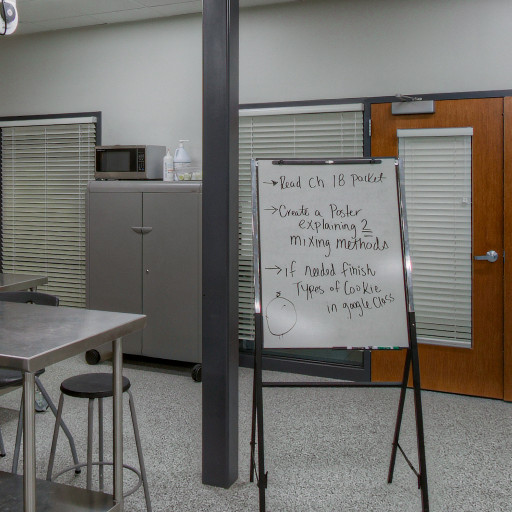 → Read Ch 18 Packet
→ Create a Poster
explaining 2
mixing methods
→ if needed finish
Types of Cookie
in google Class